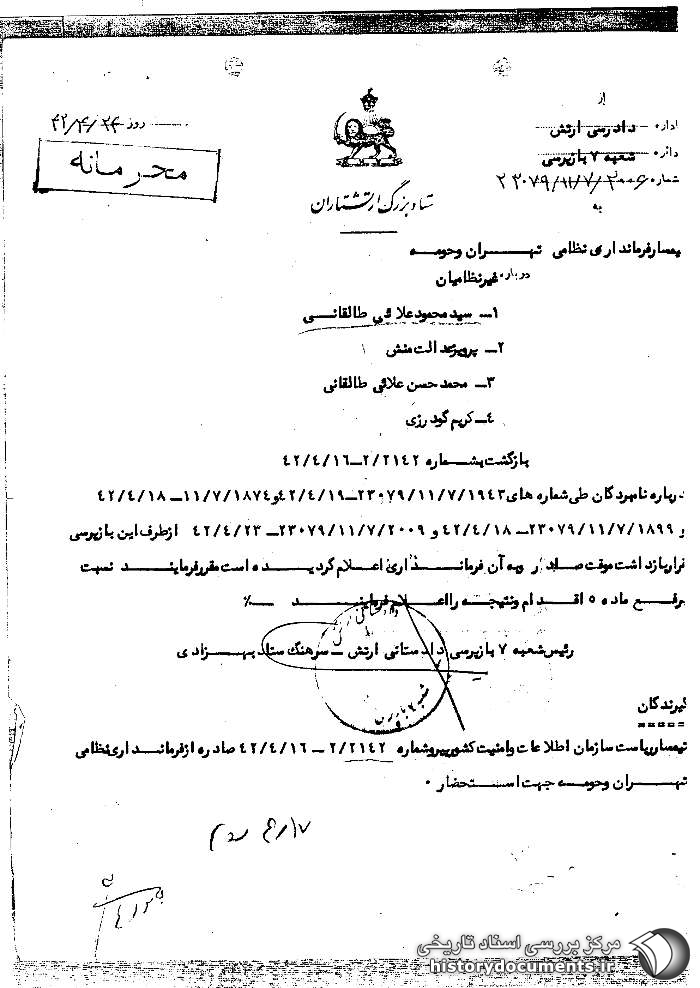 از
اداره دادرسی ارتش
دائره شعبه ۷ بازپرسی
شماره ۲۲۰۷۹/۱۱/۷/۲۰۰۶
به
روز ۴۲/۴/۲۴
محرمانه
ستاد بزرگ ارتشتاران
تیمسار فرمانداری نظامی تهران وحومه
درباره غیرنظامیان
۱ـ سیدمحمود علائی طالقانی
۲ـ پرویز عدالت منش
۳ـ محمد حسن علائی طالقانی
٤ـ کریم گودرزی
بازگشت بشماره ۲/۲۱٤۲ـ٤۲/٤/۱۶
درباره نامبردگان طی شماره های ۲۳۰۷۹/۱۱/۷/۱۹٤۳ـ٤۲/٤/۱۹ و ۱۱/۷/۱۸۷٤ـ ٤۲/٤/۱۸
و ۲۳۰۷۹/۱۱/۷/۱۸۹۹ـ ٤۲/٤/۱۸ و ۲۳۰۷۹/۱۱/۷/۲۰۰۹ـ ٤۲/٤/۲۳ ازطرف این بازپرسی
قرار بازداشت موقت صادر وبه آن فرمانداری اعلام گردیده است مقرر فرمایند نسبت
برفع ماده ۵ اقدام ونتیجه را اعلام فرمایند ـ٪
رئیس شعبه ۷ بازپرسی دادستانی ارتش ـ سرهنگ ستاد بهزادی
گیرندگان
تیمسار ریاست سازمان اطلاعات وامنیت کشور پیرو شماره ۲/۲۱٤۲ ـ ٤۲/٤/۱۶ صادره از فرمانداری نظامی
تهران وحومه جهت استحضار ۰
مرکز بررسی اسناد تاریخی
historydocuments.ir